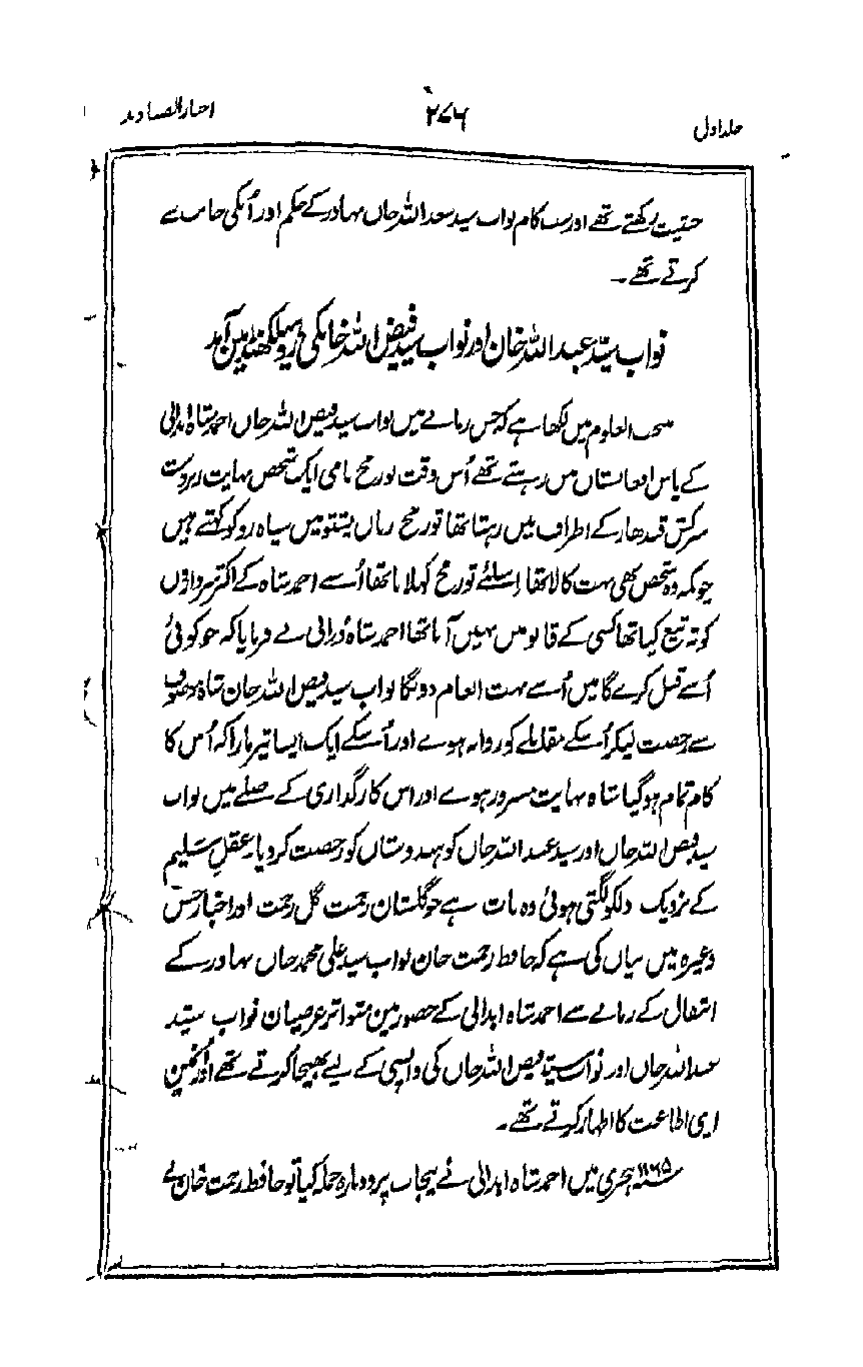 جلد اول
۲۷۶
اخبار الصنادید
حیثیت رکھتے تھے اور سب کام نواب سید سعد اللہ خاں بہادر کے حکم اور اُنکی جانب سے
کرتے تھے۔
نواب سیّد عبد اللہ خان اور نواب سید فیض اللہ خانکی روہیلکھنڈ مین آمد
منتخب العلوم میں لکھا ہے کہ جس زمانے میں نواب سید فیض اللہ خاں احمد شاہ ابدالی
کے پاس افغانستان میں رہتے تھے اُس وقت نور مخ نامی ایک شخص نہایت زبردست
سرکش قندھار کے اطراف میں رہتا تھا تور مخ زبان پشتو میں سیاہ رو کو کہتے ہیں
چونکہ وہ شخص بھی بہت کالا تھا اسلئے تور مخ کہلاتا تھا اُسے احمد شاہ کے اکثر سرداروں
کو تہ تیغ کیا تھا کسی کے قابو میں نہیں آتا تھا احمد شاہ دُرانی نے فرمایا کہ جو کوئی
اُسے قتل کرے گا میں اُسے بہت انعام دونگا نواب سید فیض اللہ خان شاہ موصوف
سے رخصت لیکر اُسکے مقابلے کو روانہ ہوے اور اُسکے ایک ایسا تیر مارا کہ اُس کا
کام تمام ہو گیا شاہ نہایت مسرور ہوے اور اس کارگذاری کے صلے میں نواب
سید فیض اللہ خاں اور سید عبد اللہ خاں کو ہندوستان کو رخصت کر دیا۔ عقل سلیم
کے نزدیک دلکو لگتی ہوئی وہ بات ہے جو گلستان رحمت گل رحمت اور اخبار حسن
وغیرہ میں بیان کی ہے کہ حافظ رحمت خان نواب سید علی محمد خاں بہادر کے
انتقال کے زمانے سے احمد شاہ ابدالی کے حضور مین متواتر عرضیان نواب سیّد
عبد اللہ خاں اور نواب سید فیض اللہ خاں کی واپسی کے لیے بھیجا کرتے تھے اور اُنمین
اپنی اطاعت کا اظہار کرتے تھے۔
۱۱۶۵ ہجری میں احمد شاہ ابدالی نے پنجاب پر دوبارہ حملہ کیا تو حافظ رحمت خان نے